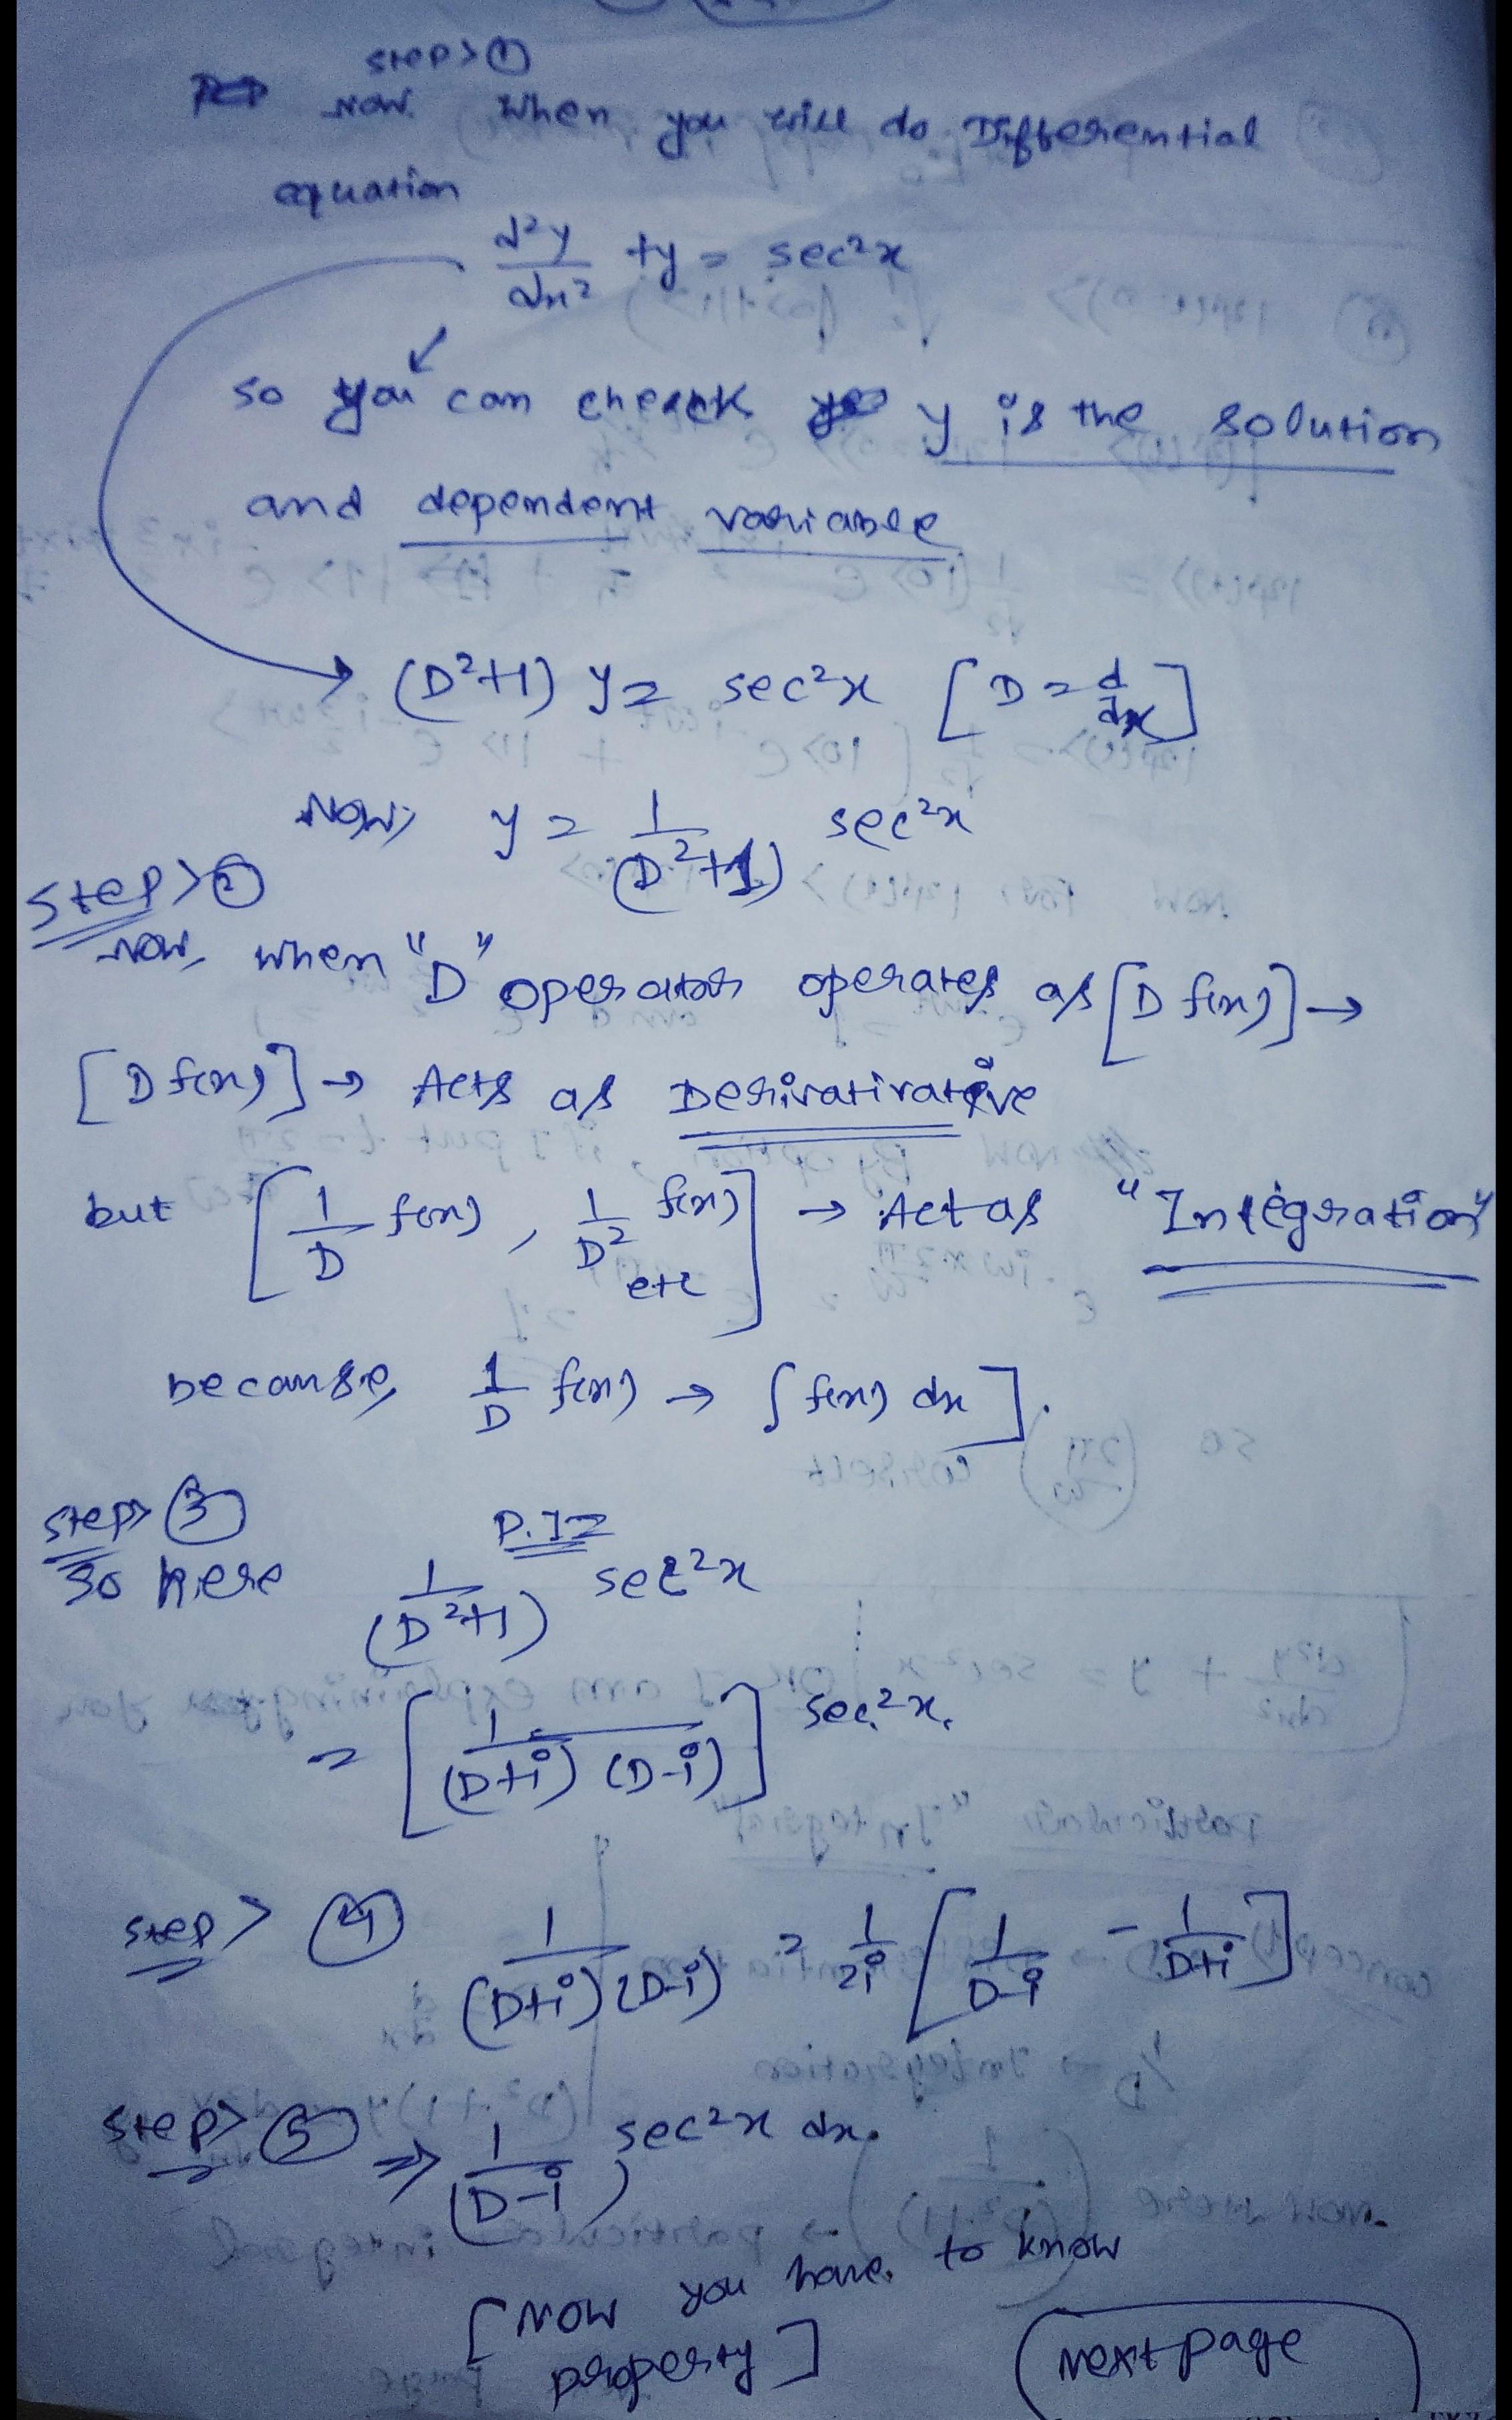 step > ①
Now. When you will do Differential
equation
d²y/dx² + y = sec²x
so you can cheack y is the solution
and dependent variable
→ (D²+1) y = sec²x [D = d/dx]
Now, y = 1/(D²+1) sec²x
step > ②
Now, when "D" operator operates as [D f(x)] →
[D f(x)] → Acts as Derivativative
but [1/D f(x), 1/D² f(x) etc] → Act as "Integration"
because, 1/D f(x) → ∫ f(x) dx].
step > ③
P.I =
So here 1/(D²+1) sec²x
= [1/(D+i)(D-i)] sec²x.
step > ④ 1/(D+i)(D-i) = 1/2i [1/D-i - 1/D+i]
step > ⑤ ⇒ 1/(D-i) sec²x dx.
[Now you have to know
property]
Next page